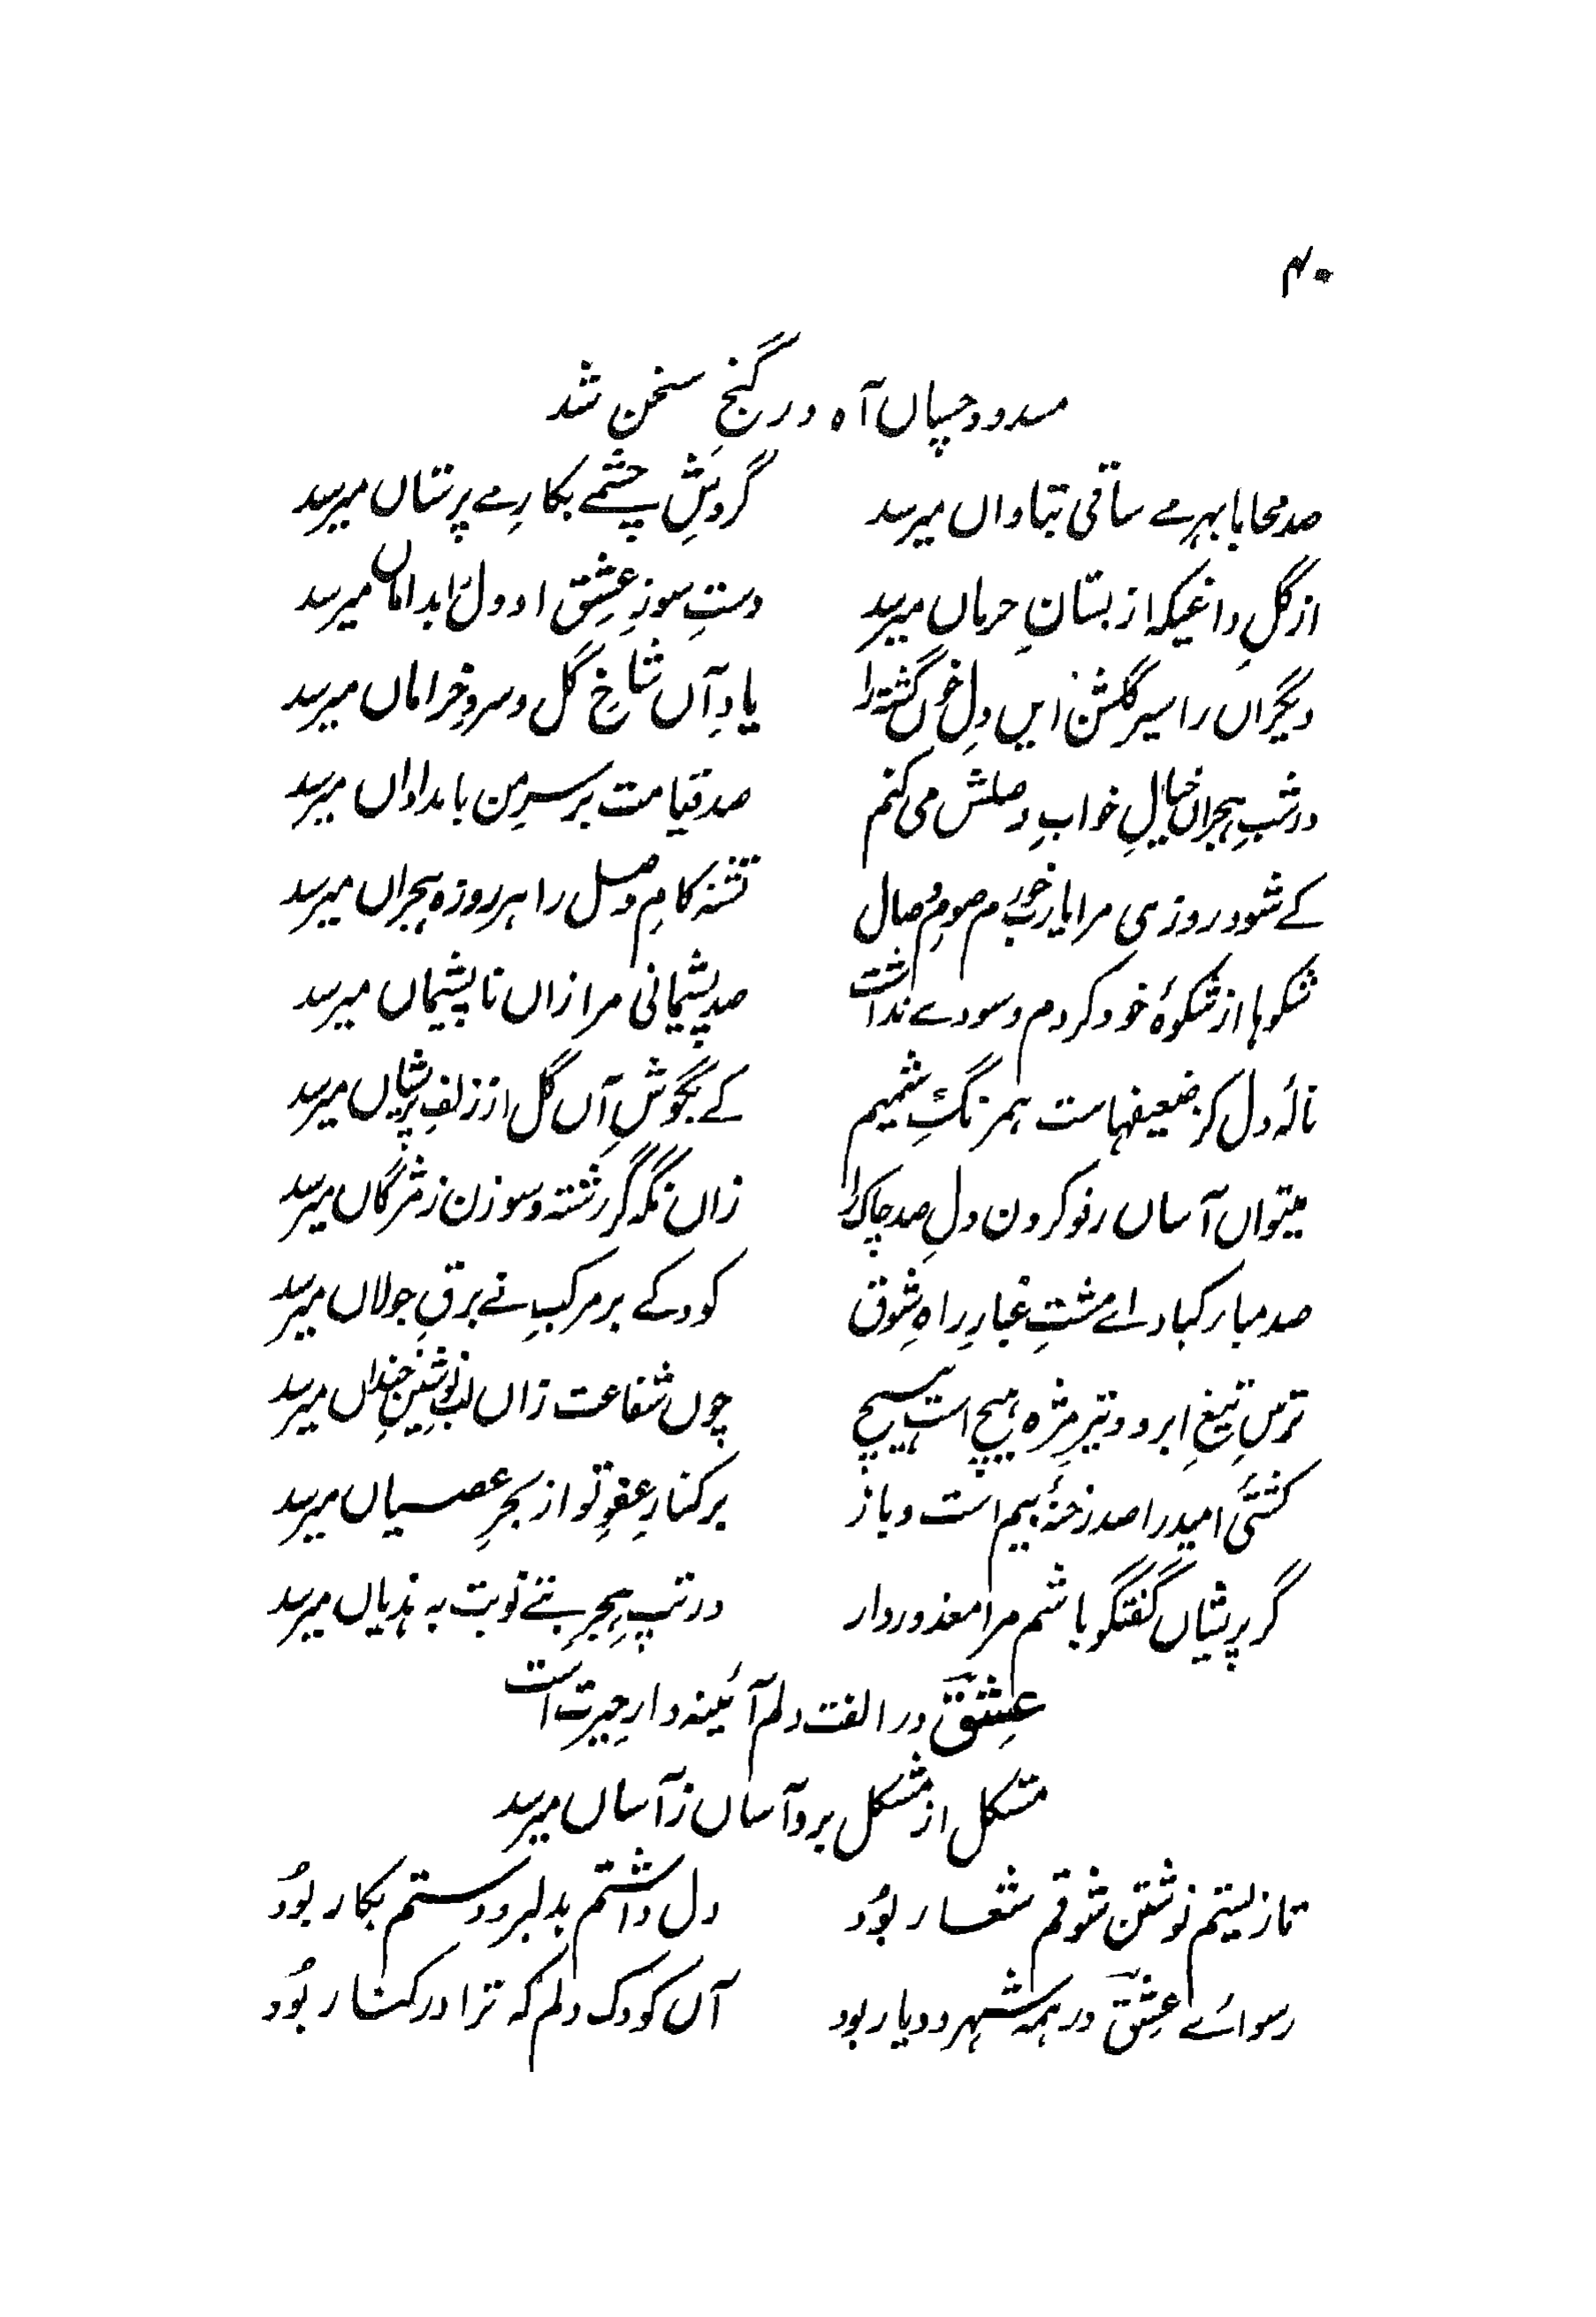 ۴۰
مسدود چساں آہ در گنجِ سخن شد
صد محابا بہرمے ساقی بتاواں میرسد گردشِ چشمے بکارِ مے پرستاں میرسد
از گلِ داغیکہ از بستانِ حرماں میرسد دستِ سوزِ عشق او دل را بداماں میرسد
دیگراں را سیر گلشن ایں دلِ خوں گشتہ را یادِ آں شاخِ گل و سروِ خراماں میرسد
در شبِ ہجراں خیالِ خوابِ وصلش می کنم صد قیامت بر سرِ من بامداداں میرسد
کے شود روزی مرا یا رب خورم صومِ وصال تشنہ کامِ وصل را ہر روزہ ہجراں میرسد
شکوہا از شکوۂ خود کردم و سودے نداشت صد پشیمانی مرا زاں نا پشیماں میرسد
نالۂ دل کز ضعیفہاست ہمرنگِ شمیم کے بگوشِ آں گل از زلفِ پریشاں میرسد
میتواں آساں رفو کردن دلِ صد چاک را زاں نگہ گر رشتہ و سوزن ز مژگاں میرسد
صد مبارکباد اے مشتِ غبارِ راہِ شوق کودکے بر مرکبِ نے برقِ جولاں میرسد
ترسِ تیغِ ابرو و تیرِ مژہ ہیچ است ہیچ چوں شفاعت زاں لبِ نوشینِ خنداں میرسد
کشتیٔ امید را صد رخنۂ بیم است و باز بر کنارِ عفوِ تو از بحرِ عصیاں میرسد
گر پریشاں گفتگو باشم مرا معذور دار در تپِ ہجرِ بتے نوبت بہ ہذیاں میرسد
عشقؔ در الفت دلم آئینہ دارِ حیرت است
مشکل از مشکل برد آساں ز آساں میرسد
تا زیستم نوشتن شوقم شعار بوُد دل داشتم بدلبر و دستم بکار بوُد
رسوائے عشقؔ در ہمہ شہر و دیار بود آں کودک دلم کہ ترا در کنار بوُد